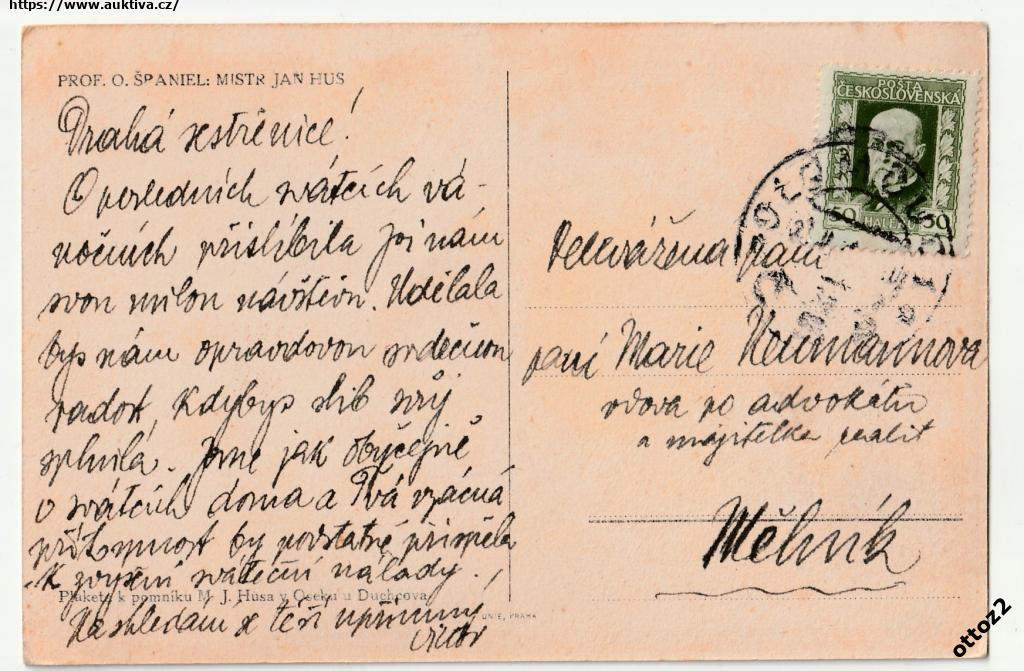 https://www.auktiva.cz/
PROF. O. ŠPANIEL: MISTR JAN HUS
Drahá sestřenice!
O posledních svátcích vá-
nočních přislíbila jsi nám
svou milou návštěvu. Udělala
bys nám opravdovou srdečnou
radost, kdybys slib svůj
splnila. Jsme jak obyčejně
o svátcích doma a Tvá vzácná
přítomnost by podstatně přispěla
k zvýšení sváteční nálady.
Plaketa k pomníku M. J. Husa v Oseku u Duchcova
Na shledání se těší upřímný
Victor
UNIE, PRAHA
POŠTA
ČESKOSLOVENSKÁ
50 HALÉŘŮ 50
Velevážená paní
paní Marie Neumannova
vdova po advokátu
a majitelka realit
Mělník
ottoz2